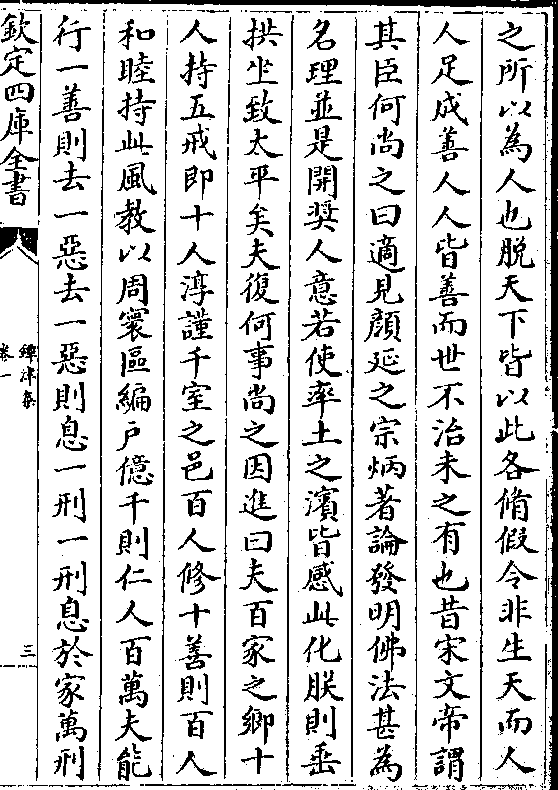 之所以為人也脫天下皆以此各脩假令非生天而人
人足成善人人皆善而世不治未之有也昔宋文帝謂
其臣何尚之曰適見顔延之宗炳著論發明佛法甚為
名理並是開奨人意若使率土之濱皆感此化朕則垂
拱坐致太平矣夫復何事尚之因進曰夫百家之鄉十
人持五戒即十人淳謹千室之邑百人修十善則百人
和睦持此風教以周寰區編户億千則仁人百萬夫能
行一善則去一惡去一惡則息一刑一刑息於家萬刑
欽定四庫全書
鐔津集
卷一
三